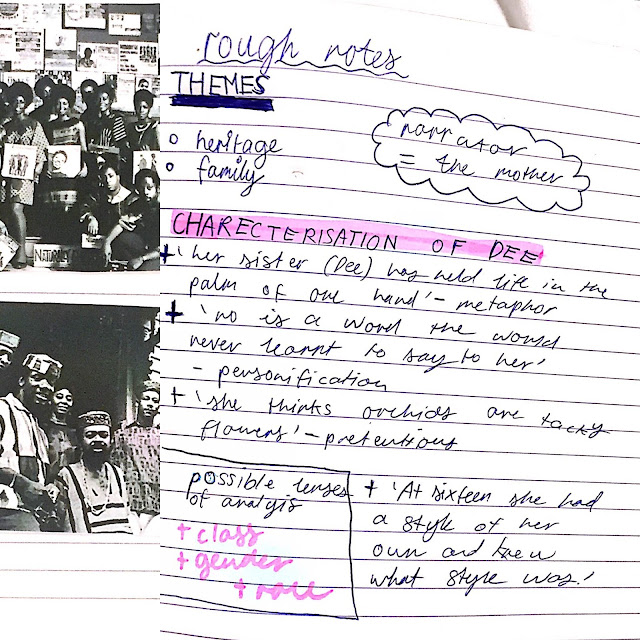 rough notes
THEMES
o heritage
o family
narrator
= the mother
CHARECTERISATION OF DEE
+ 'her sister (Dee) has held life in the
palm of one hand' - metaphor
+ 'no is a word the world
never learnt to say to her'
- personification
+ 'she thinks orchids are tacky
flowers' - pretentious
possible lenses
of analysis
+ class
+ gender
+ race
+ 'At sixteen she had
a style of her
own and knew
what style was.'
NATURALLY